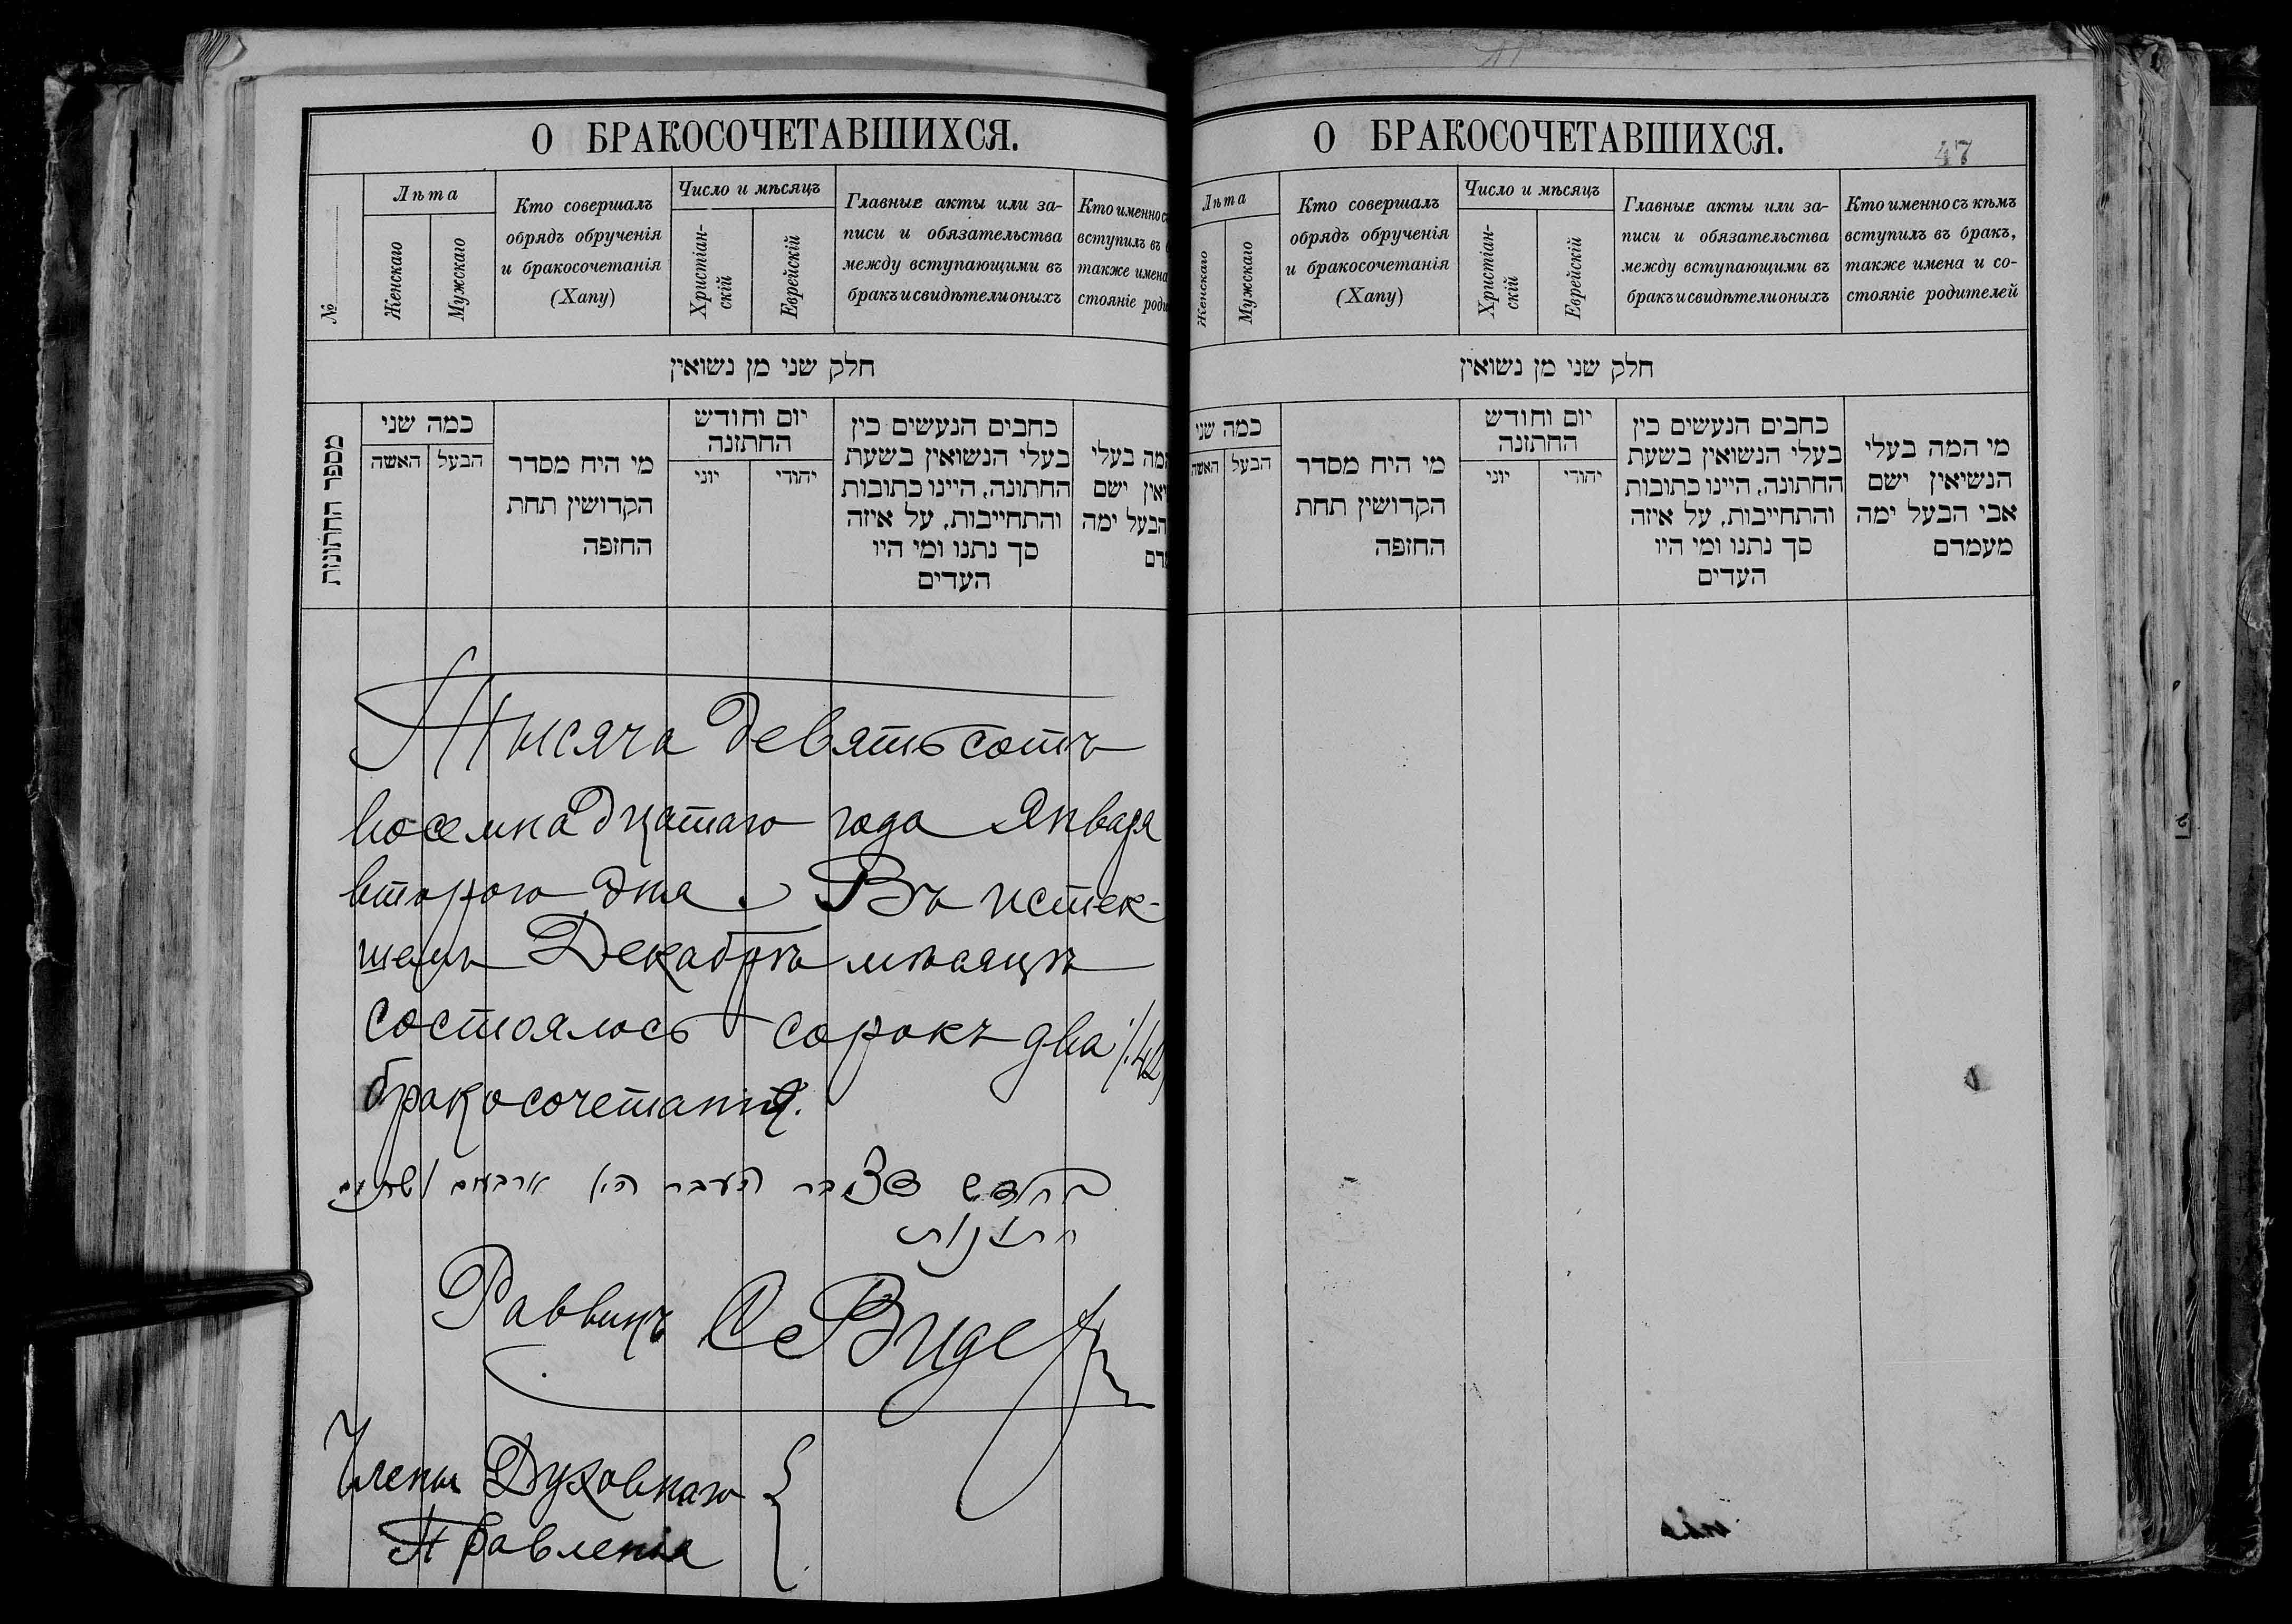 О БРАКОСОЧЕТАВШИХСЯ.
№
Лѣта
Женскаго
Мужскаго
Кто совершалъ
обрядъ обрученія
и бракосочетанія
(Хапу)
Число и мѣсяцъ
Христіан-
скій
Еврейскій
Главные акты или за-
писи и обязательства
между вступающими въ
бракъ и свидѣтели оныхъ
Кто именно съ
вступилъ въ
также имена
стояніе
חלק שני מן נשואין
מספר החתונות
כמה שני
האשה
הבעל
מי היח מסדר
הקדושין תחת
החופה
יום וחודש
החתונה
יוני
יהודי
כחבים הנעשים כין
בעלי הנשואין בשעת
החתונה, היינו כתובות
והתחייבות, על איזה
סך נתנו ומי היו
העדים
המה בעלי
ישם
הבעל ימה
Тысяча девятьсотъ
восемнадцатаго года Января
второго дня. Въ истек-
шемъ Декабрѣ мѣсяцѣ
состоялось сорокъ два /:42/
бракосочетанія.
בחדש דצמבר העבר היו ארבעים ושתים
חתונות
Раввинъ
Члены Духовнаго
Правленія
О БРАКОСОЧЕТАВШИХСЯ.
47
Лѣта
Женскаго
Мужскаго
Кто совершалъ
обрядъ обрученія
и бракосочетанія
(Хапу)
Число и мѣсяцъ
Христіан-
скій
Еврейскій
Главные акты или за-
писи и обязательства
между вступающими въ
бракъ и свидѣтели оныхъ
Кто именно съ кѣмъ
вступилъ въ бракъ,
также имена и со-
стояніе родителей
חלק שני מן נשואין
כמה שני
האשה
הבעל
מי היח מסדר
הקדושין תחת
החופה
יום וחודש
החתונה
יוני
יהודי
כחבים הנעשים כין
בעלי הנשואין בשעת
החתונה, היינו כתובות
והתחייבות, על איזה
סך נתנו ומי היו
העדים
מי המה בעלי
הנשיאין ישם
אבי הבעל ימה
מעמדם